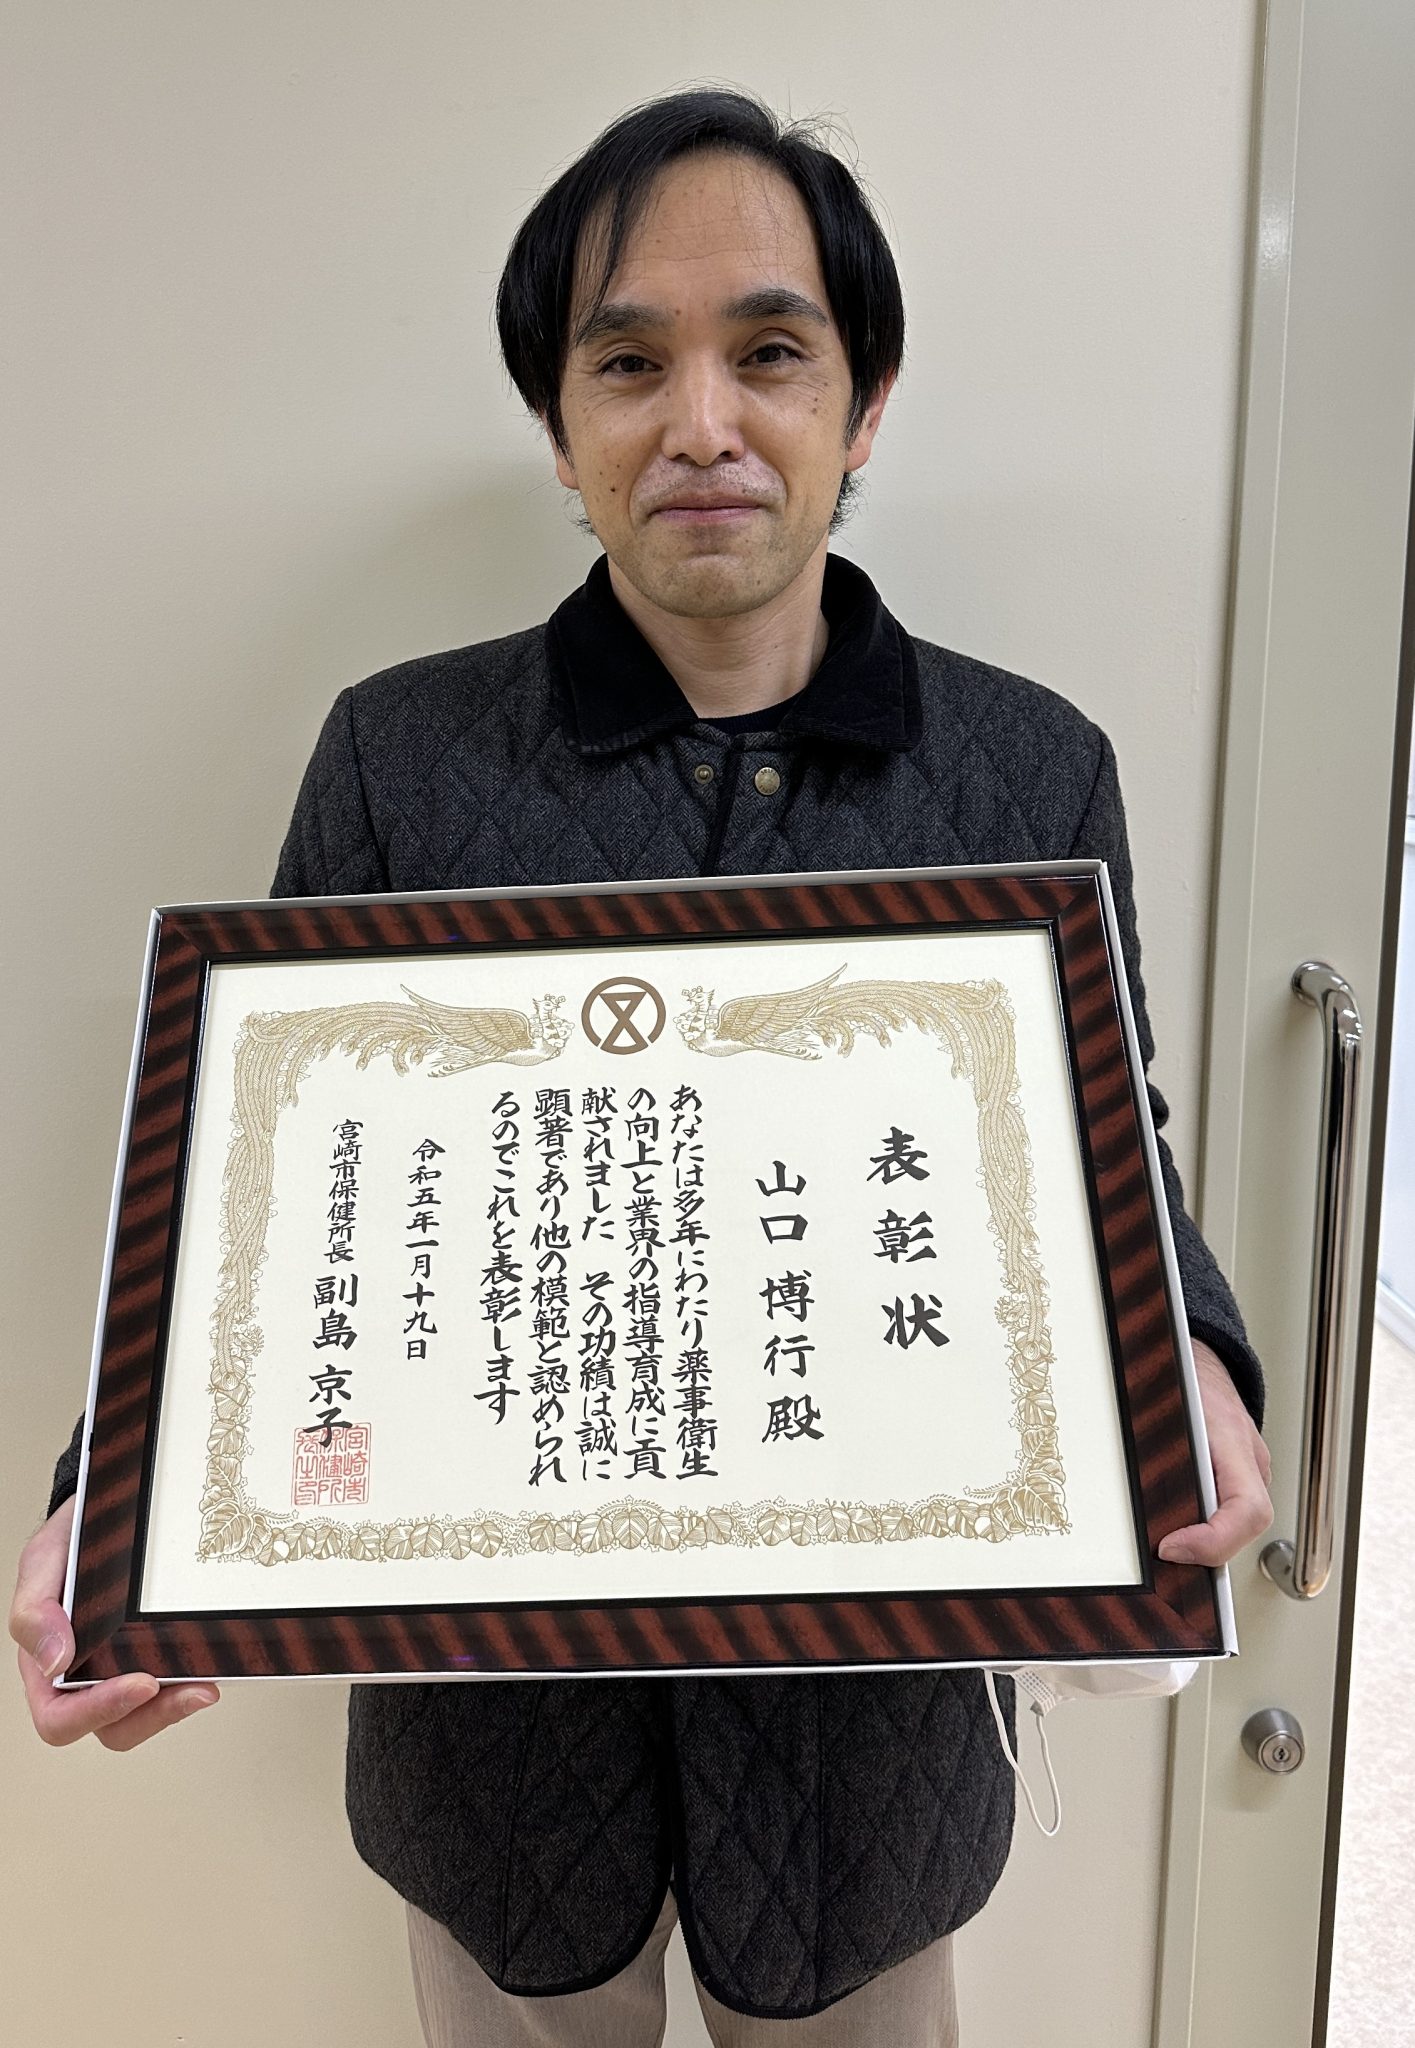 表彰状
山口博行殿
あなたは多年にわたり薬事衛生
の向上と業界の指導育成に貢
献されました その功績は誠に
顕著であり他の模範と認められ
るのでこれを表彰します
令和五年一月十九日
宮崎市保健所長 副島京子
宮崎市
保健所
長之印